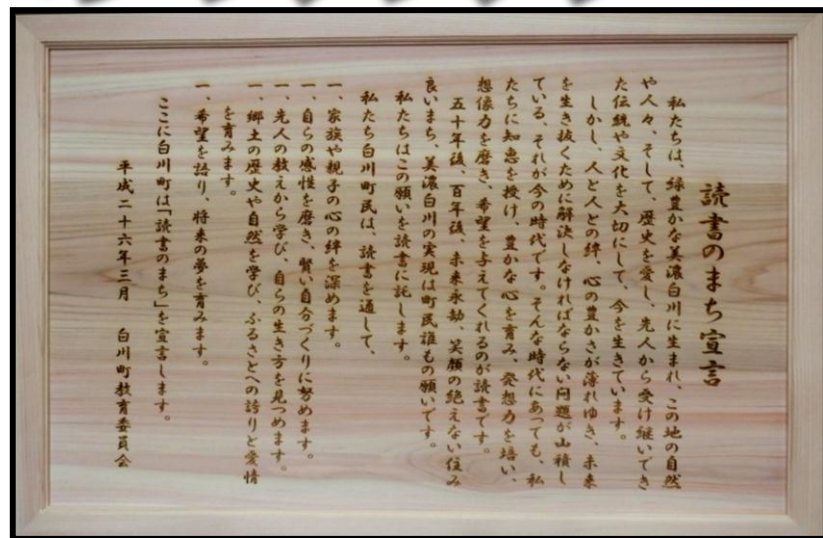 読書のまち宣言
私たちは、緑豊かな美濃白川に生まれ、この地の自然
や人々、そして、歴史を愛し、先人から受け継いでき
た伝統や文化を大切にして、今を生きています。
しかし、人と人との絆、心の豊かさが薄れゆき、未来
を生き抜くために解決しなければならない問題が山積し
ている、それが今の時代です。そんな時代にあっても、私
たちに知恵を授け、豊かな心を育み、発想力を培い、
想像力を磨き、希望を与えてくれるのが読書です。
五十年後、百年後、未来永劫、笑顔の絶えない住み
良いまち、美濃白川の実現は町民誰もの願いです。
私たちはこの願いを読書に託します。
私たち白川町民は、読書を通して、
一、家族や親子の心の絆を深めます。
一、自らの感性を磨き、賢い自分づくりに努めます。
一、先人の教えから学び、自らの生き方を見つめます。
一、郷土の歴史や自然を学び、ふるさとへの誇りと愛情
を育みます。
一、希望を語り、将来の夢を育みます。
ここに白川町は「読書のまち」を宣言します。
平成二十六年三月 白川町教育委員会